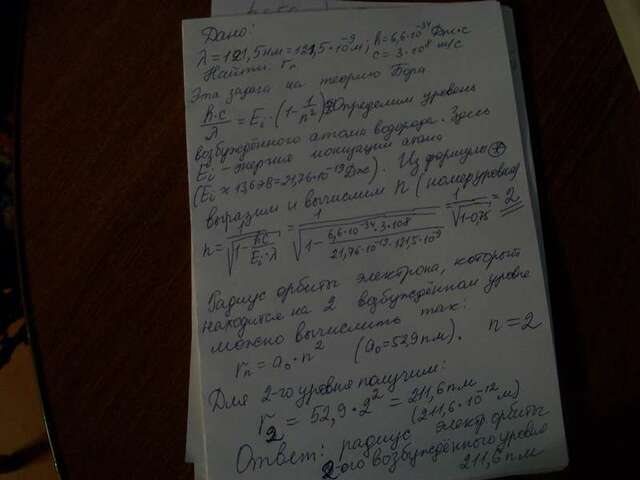 Дано:
λ = 121,5 нм = 121,5·10⁻⁹ м; h = 6,6·10⁻³⁴ Дж·с
Найти: rₙ c = 3·10⁸ м/с
Эта задача на теорию Бора
h·c/λ = Ei·(1 - 1/n²) Определим уровень
возбуждённого атома водорода. Здесь
Ei - энергия ионизации атома
(Ei ≈ 13,6 эВ = 21,76·10⁻¹⁹ Дж). Из формулы *
выразим и вычислим n (номер уровня)
n = 1/√(1 - hc/(Ei·λ)) = 1/√(1 - 6,6·10⁻³⁴·3·10⁸/(21,76·10⁻¹⁹·121,5·10⁻⁹)) = 1/√(1-0,75) = 2
Радиус орбиты электрона, который
находится на 2 возбуждённом уровне
можно вычислить так:
rₙ = a₀·n² (a₀ = 52,9 пм). n = 2
Для 2-го уровня получим:
r₂ = 52,9·2² = 211,6 пм
(211,6·10⁻¹² м)
Ответ: радиус электр орбиты
2-ого возбуждённого уровня
211,6 пм